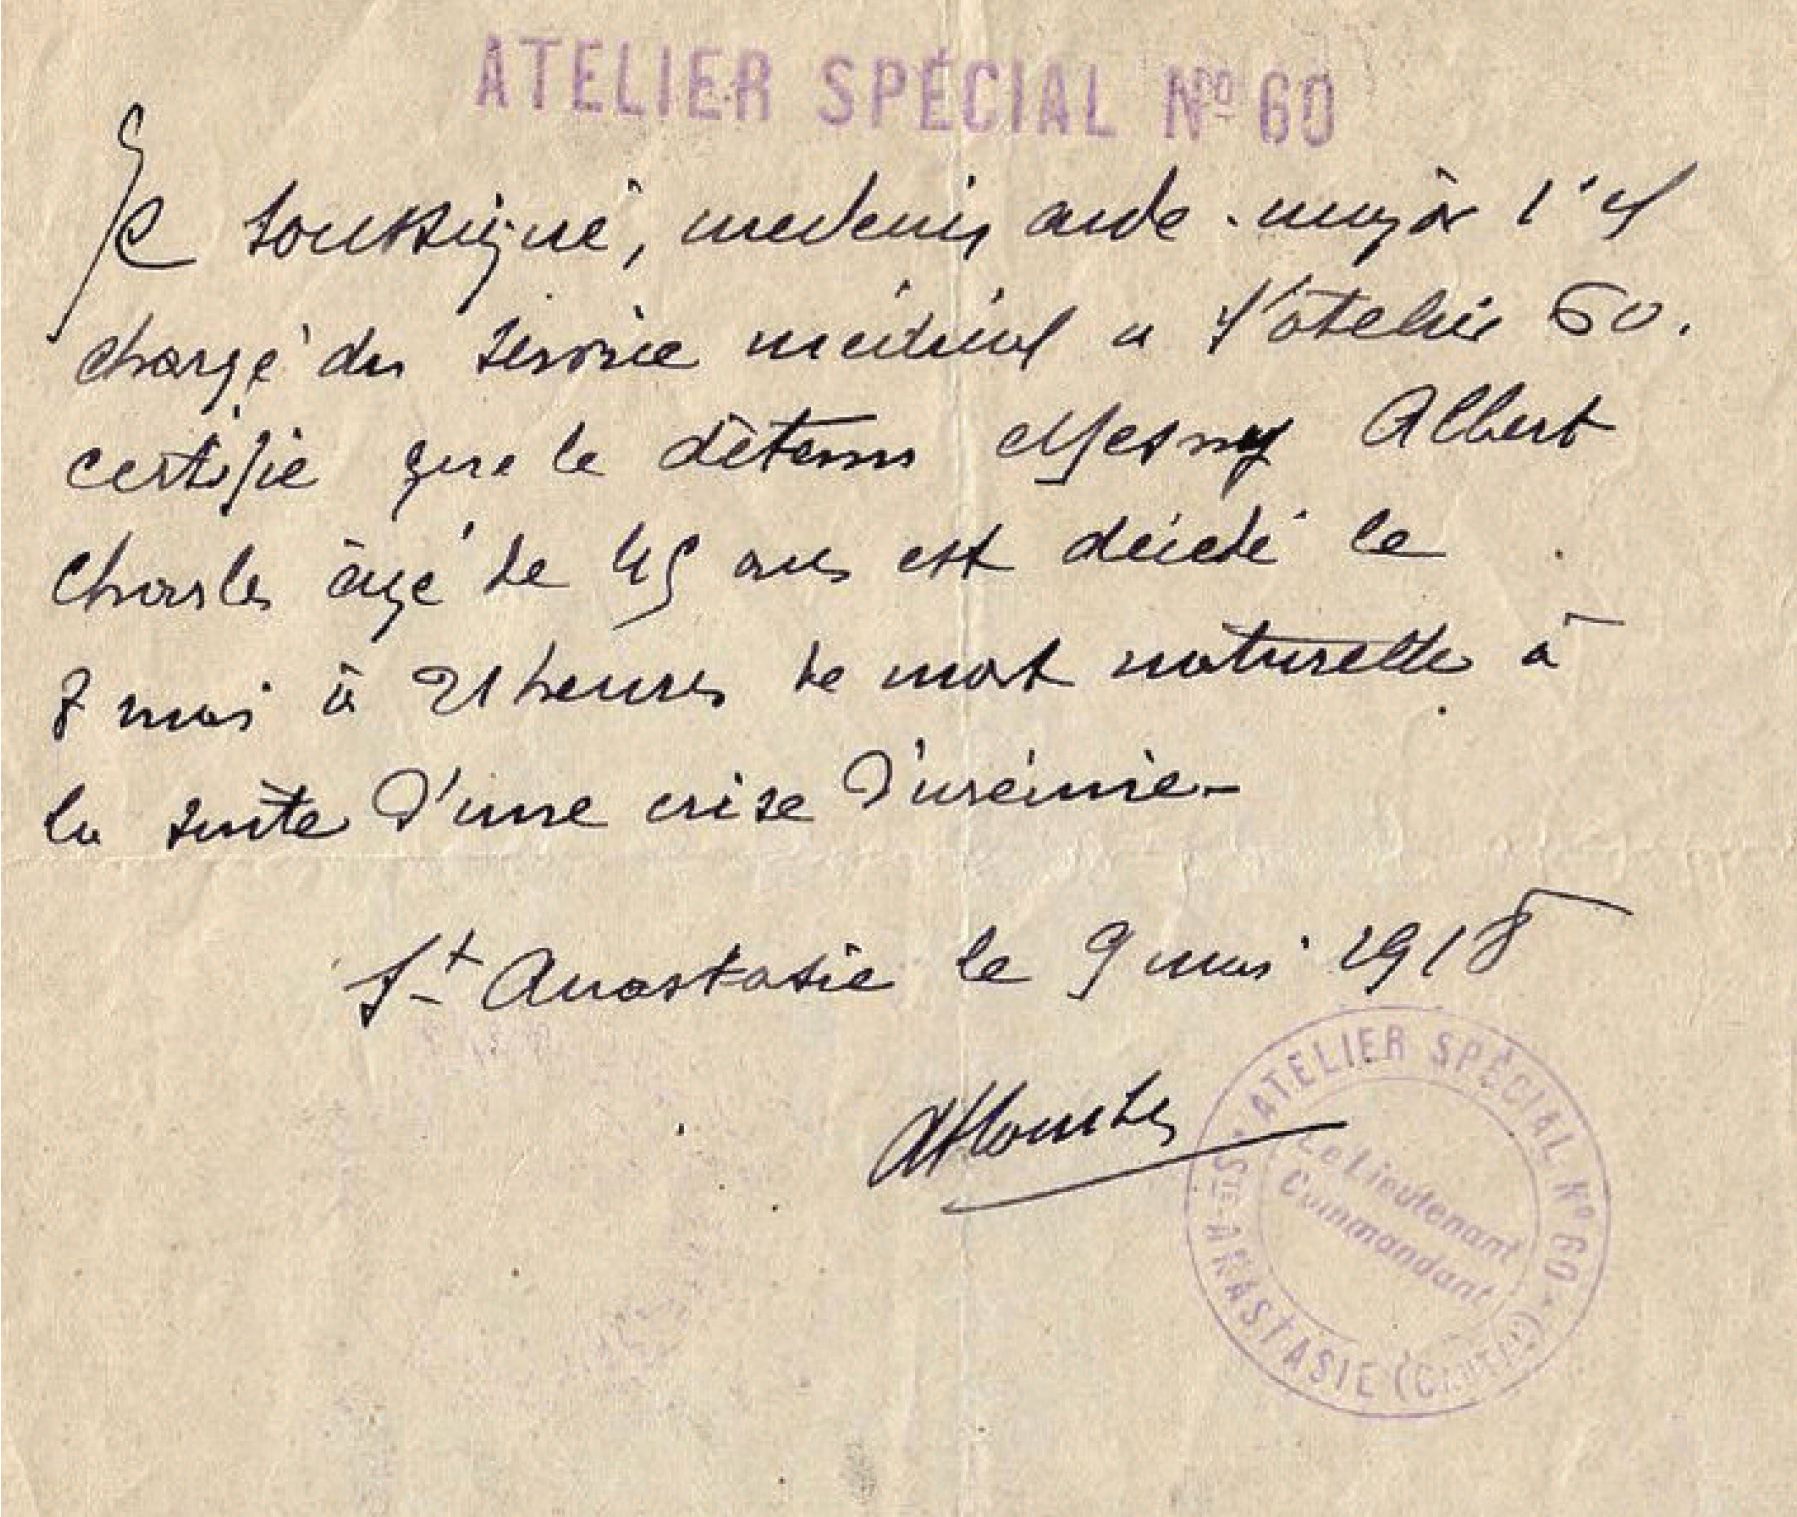 ATELIER SPÉCIAL Nº 60
Je soussigné, medecin aide-major 1e cl
chargé du service médical a l'atelier 60.
certifie que le détenu Mesmy Albert
Charles âgé de 45 ans est décédé le
8 mai à 21 heures de mort naturelle à
la suite d'une crise d'urémie-
St Anastasie le 9 mai 1918
ATELIER SPÉCIAL Nº 60
Le Lieutenant
Commandant
STE-ANASTASIE (CANTAL)